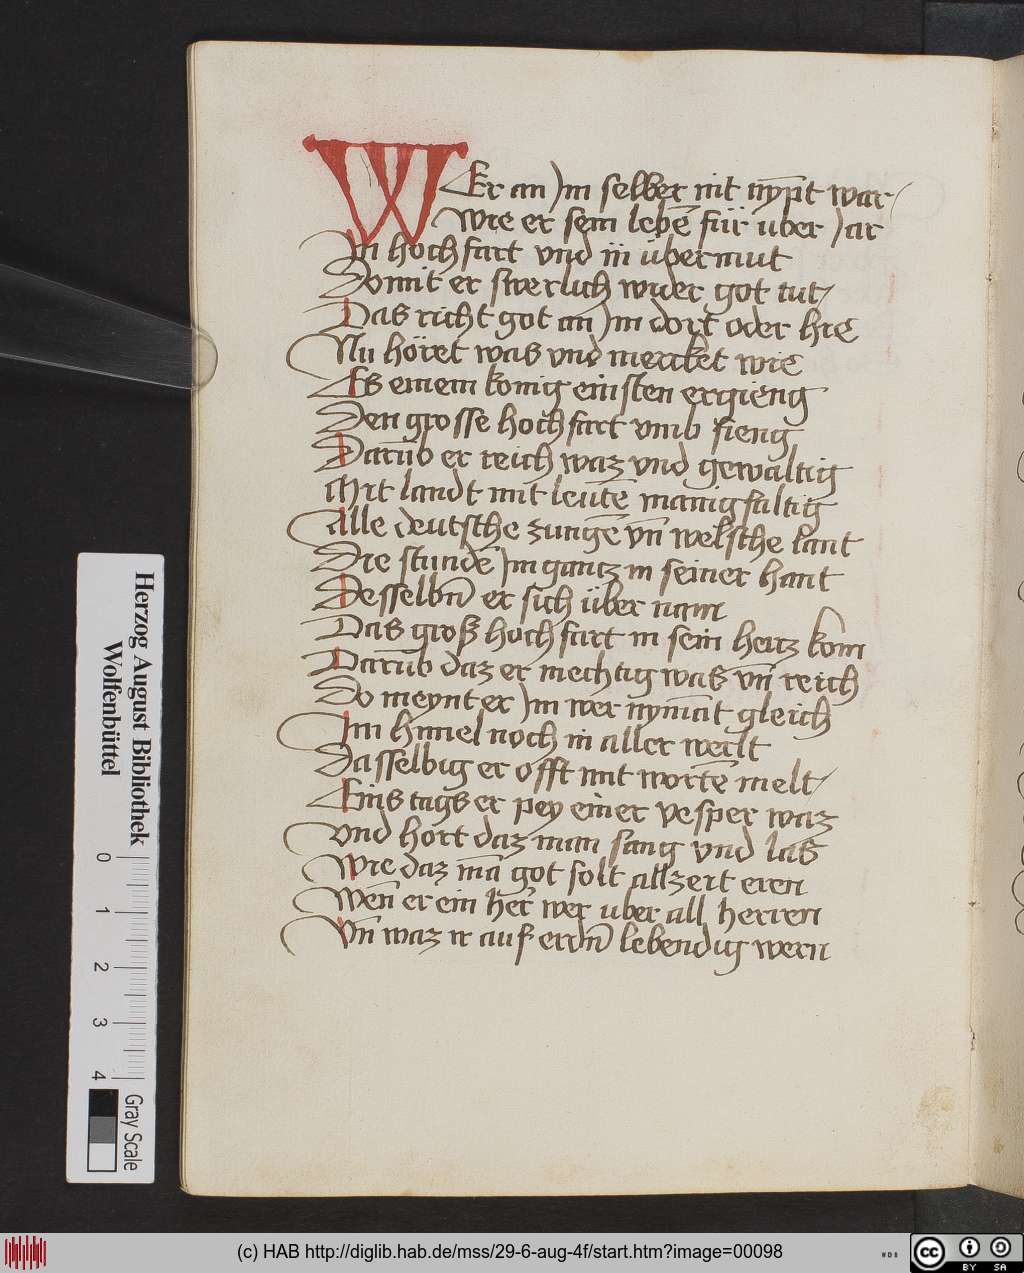 WEr an Jm selber nit nympt war
wie er sein lebē für uber Jar
In hochfart vnd in übermut
Domit er swerlich wider got tut
Das richt got an Jm dort oder hie
Nu höret was vnd mercket wie
Es einem konig einsten ergieng
Den grosse hochfart vmb fieng
Darūb er reich waz vnd gewaltig
Mit landt mit leutē manigfaltig
Alle deutsche zungē vn̄ welsche lant
Die stundē Jm gantz in seiner hant
Desselbn̄ er sich über nam
Das groß hochfart in sein hertz kom
Darūb daz er mechtig was vn̄ reich
Do meynt er Jm wer nyma͞t gleich
Im himel noch in aller werlt
Dasselbig er offt mit wortē melt
Eins tags er pey einer vesper waz
vnd hort daz man sang vnd las
wie daz mā got solt allzeit eren
Wen̄ er ein her̄ wer uber all herren
Vn̄ waz ir auf erdn̄ lebendig wern
Herzog August Bibliothek
Wolfenbüttel
0 1 2 3 4
Gray Scale
(c) HAB http://diglib.hab.de/mss/29-6-aug-4f/start.htm?image=00098
WDB
cc BY SA